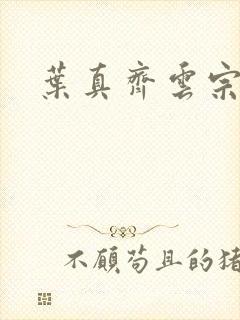 葉真齊雲宗
不顧苟且的猪